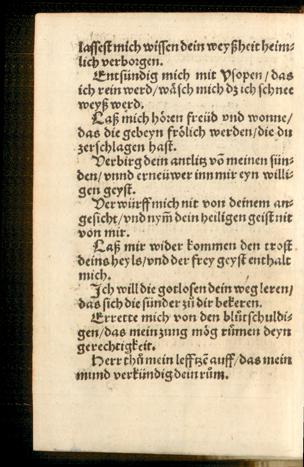 lassest mich wissen dein weyßheit heim-
lich verborgen.
Entsündig mich mit Ysopen/das
ich rein werd/wäsch mich dz ich schnee
weyß werd.
Laß mich hören freüd vnd wonne/
das die gebeyn frölich werden/die du
zerschlagen hast.
Verbirg dein antlitz võ meinen sün-
den/vnnd ernëuwer inn mir eyn willi-
gen geyst.
Verwürff mich nit von deinem an-
gesicht/vnd nym̃ dein heiligen geist nit
von mir.
Laß mir wider kommen den trost
deins heyls/vnd der frey geyst enthalt
mich.
Ich will die gotlosen dein weg leren/
das sich die sünder zů dir bekeren.
Errette mich von den blůtschuldi-
gen/das mein zung mög rümen deyn
gerechtigkeit.
Herr thů mein lefftzē auff/das mein
mund verkündig dein rům.